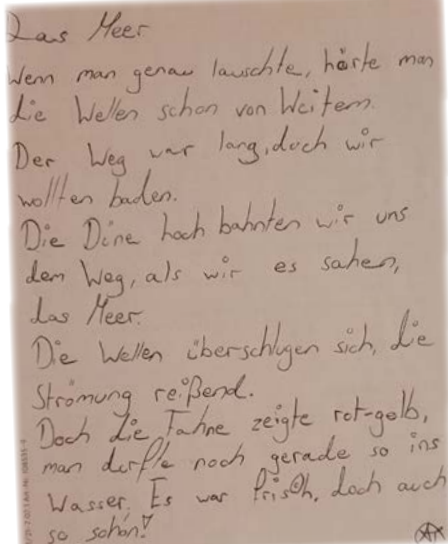 Das Meer
Wenn man genau lauschte, hörte man
die Wellen schon von Weitem.
Der Weg war lang, doch wir
wollten baden.
Die Düne hoch bahnten wir uns
dem Weg, als wir es sahen,
das Meer.
Die Wellen überschlugen sich, die
Strömung reißend.
Doch die Fahne zeigte rot-gelb,
man durfte noch gerade so ins
Wasser. Es war frisch, doch auch
so schön!